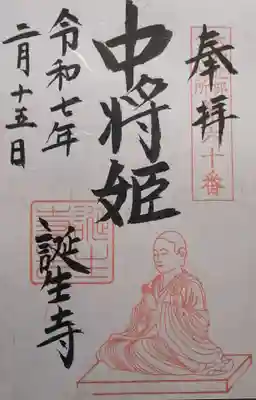 奉拝
十番
中将姫
誕生寺
誕生寺
令和七年
二月十五日